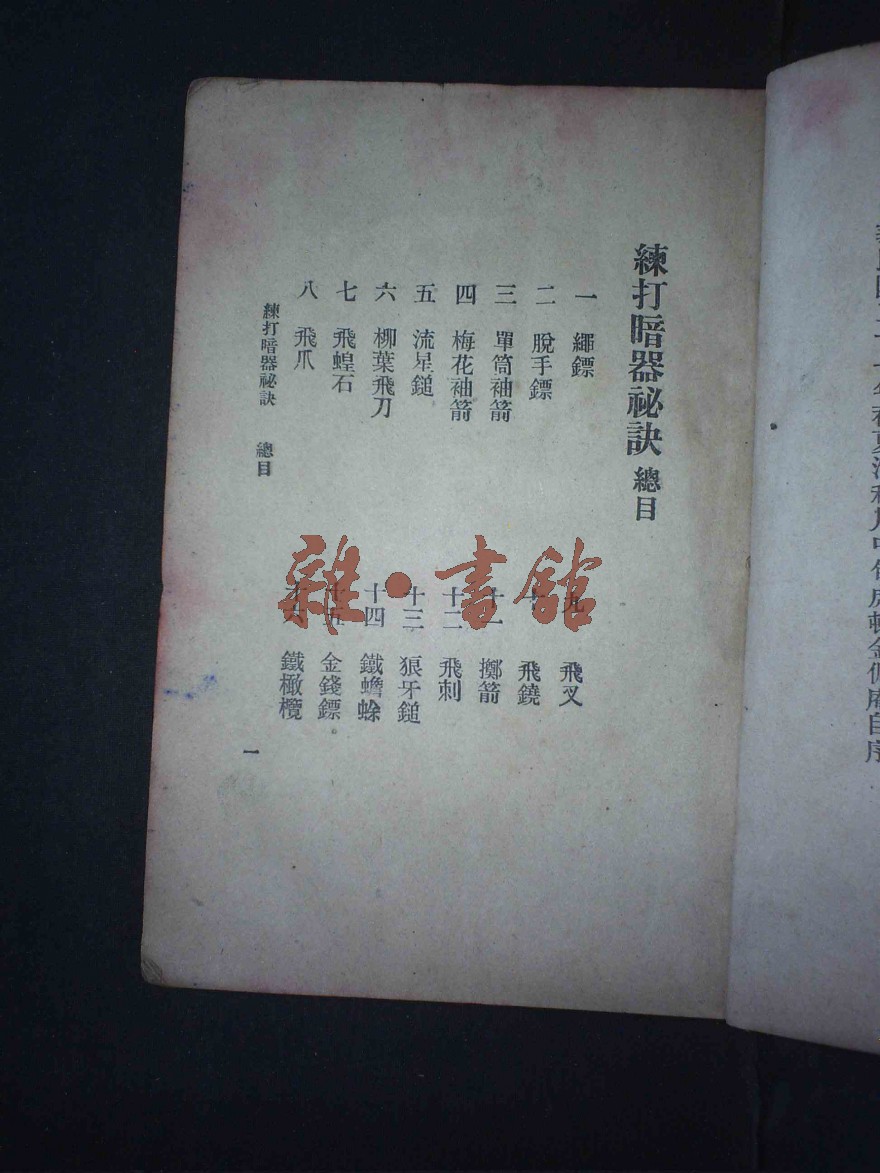 練打暗器祕訣 總目
一 繩鏢
九 飛叉
二 脫手鏢
十 飛鐃
三 單筒袖箭
十一 擲箭
四 梅花袖箭
十二 飛刺
五 流星鎚
十三 狼牙鎚
六 柳葉飛刀
十四 鐵蟾蜍
七 飛蝗石
十五 金錢鏢
八 飛爪
十六 鐵橄欖
練打暗器祕訣 總目
一
雜·書館